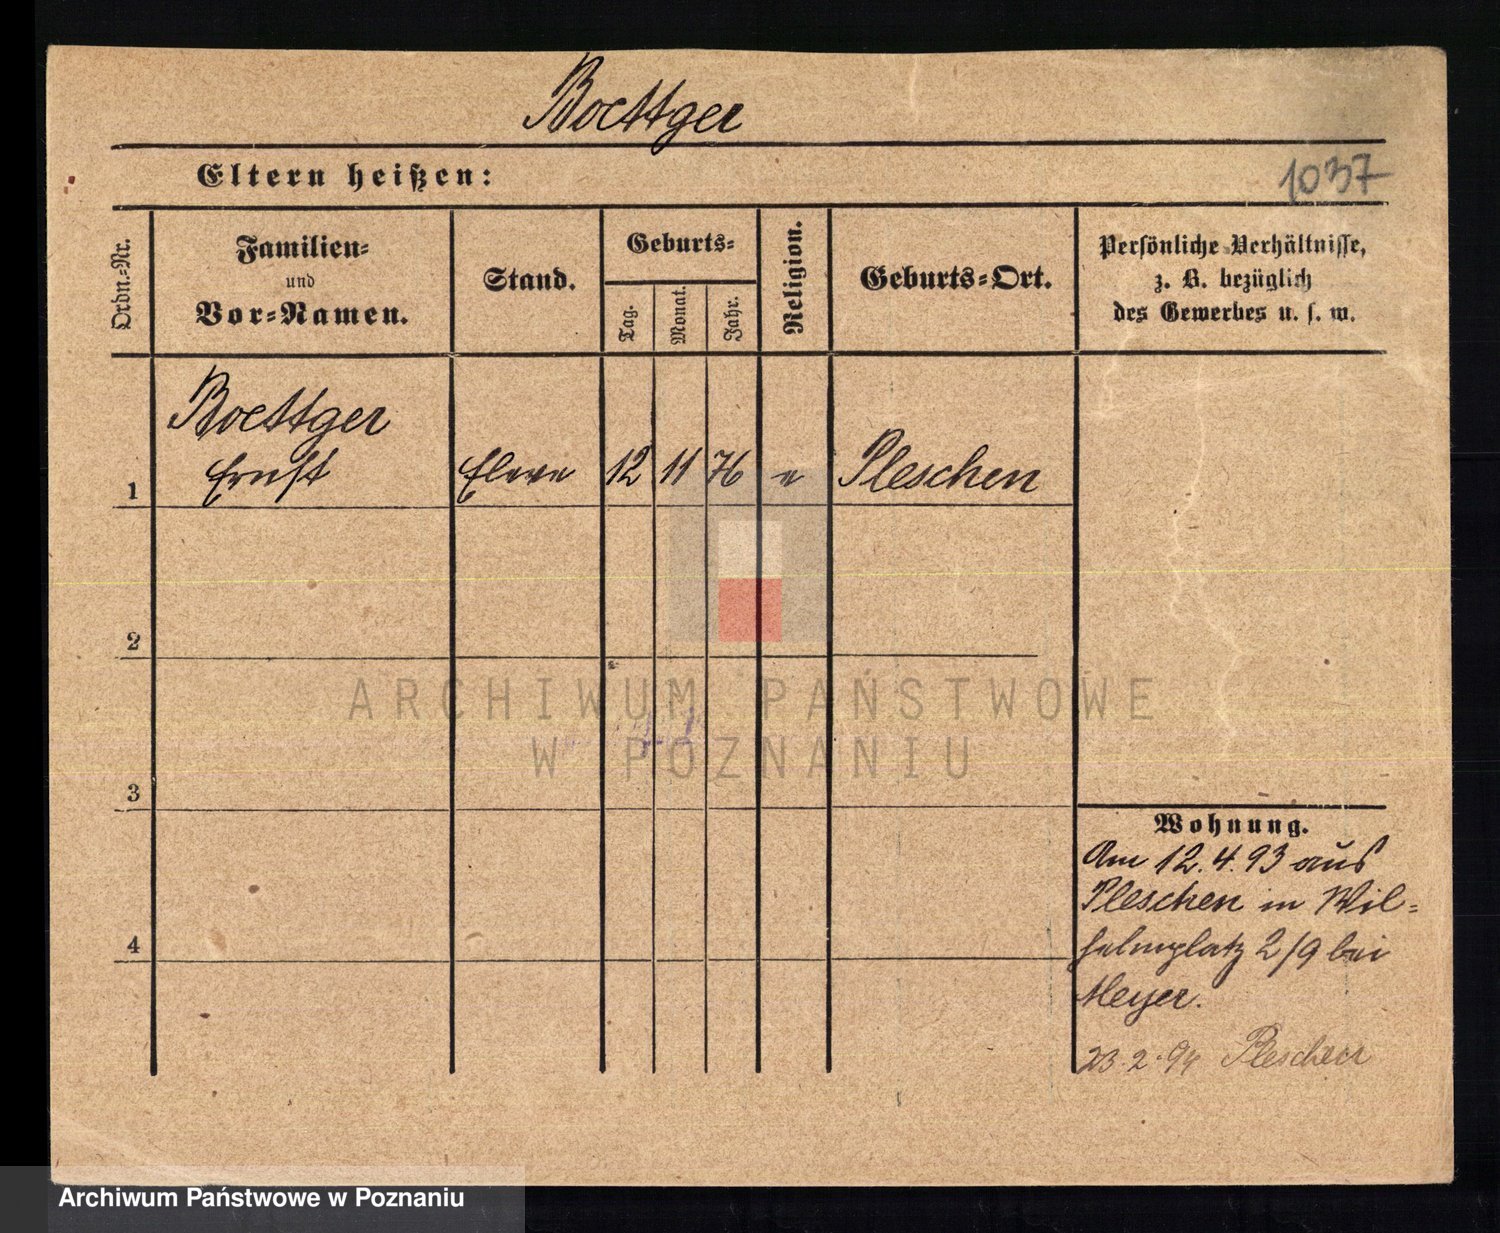 Boettger
Eltern heißen:
1037
Ordn.-Nr.
Familien-
und
Vor-Namen.
Stand.
Geburts-
Tag.
Monat.
Jahr.
Religion.
Geburts-Ort.
Persönliche Verhältnisse,
z. B. bezüglich
des Gewerbes u. s. w.
Boettger
1 Ernst Eleve 12 11 76 e Pleschen
2
3
4
Wohnung.
Am 12.4.93 aus
Pleschen in Wil-
helmplatz 2/9 bei
Meyer.
23.2.94 Pleschen
ARCHIWUM PAŃSTWOWE
W POZNANIU
Archiwum Państwowe w Poznaniu